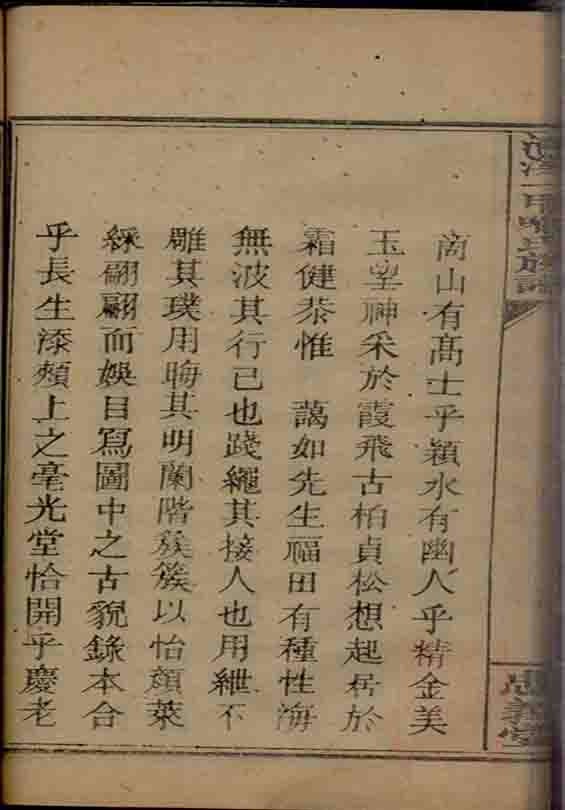 商山有高士乎潁水有幽人乎精金美
玉望神采於霞飛古柏貞松想起居於
霜健恭惟 藹如先生福田有種性海
無波其行己也踐繩其接人也用紲不
雕其璞用晦其明蘭階簇簇以怡顏萊
綵翩翩而娛目寫圖中之古貌錄本合
乎長生添頰上之毫光堂恰開乎慶老
忠義堂